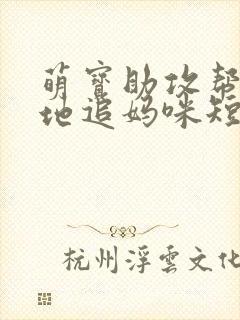 萌寳助攻帮
地追妈咪短
杭州浮雲文化